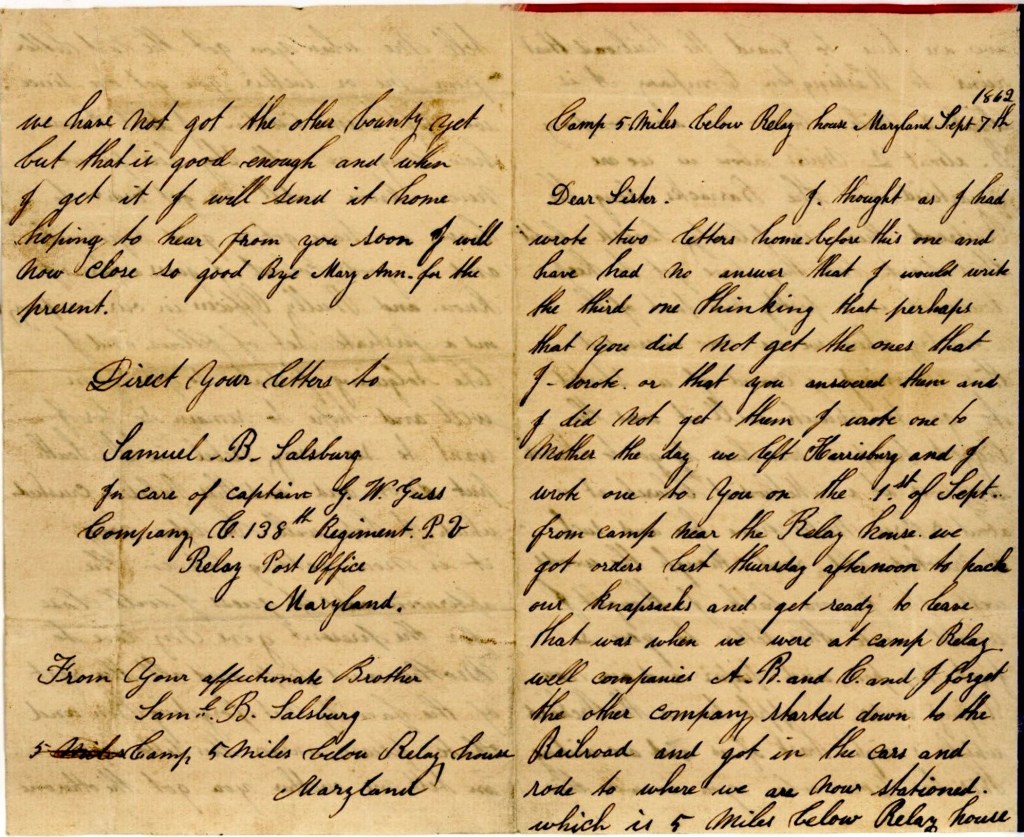 we have not got the other bounty yet
but that is good enough and when
I get it I will send it home
hoping to hear from you soon I will
now close so good Bye Mary Ann. for the
present.
Direct Your letters to
Samuel. B. Salsburg
In care of captain G. W. Guss
Company, C. 138th Regiment. P. V
Relay Post Office
Maryland.
From Your affectionate Brother
Saml. B. Salsburg
5 Miles Camp 5 Miles below Relay house
Maryland
1862
Camp 5 Miles below Relay house Maryland Sept 7th
Dear Sister. I. thought as I had
wrote two letters home before this one and
have had no answer that I would write
the third one thinking that perhaps
that you did not get the ones that
I - wrote. or that you answered them and
I did not get them I wrote one to
Mother the day we left Harrisburg and I
wrote one to You on the 1.st of Sept..
from camp near the Relay house. we
got orders last thursday afternoon to pack
our knapsacks and get ready to leave
that was when we were at camp Relay
well companies A. B. and C. and I forget
the other company started down to the
Railroad and got in the cars and
rode to where we are now stationed.
which is 5 Miles below Relay house